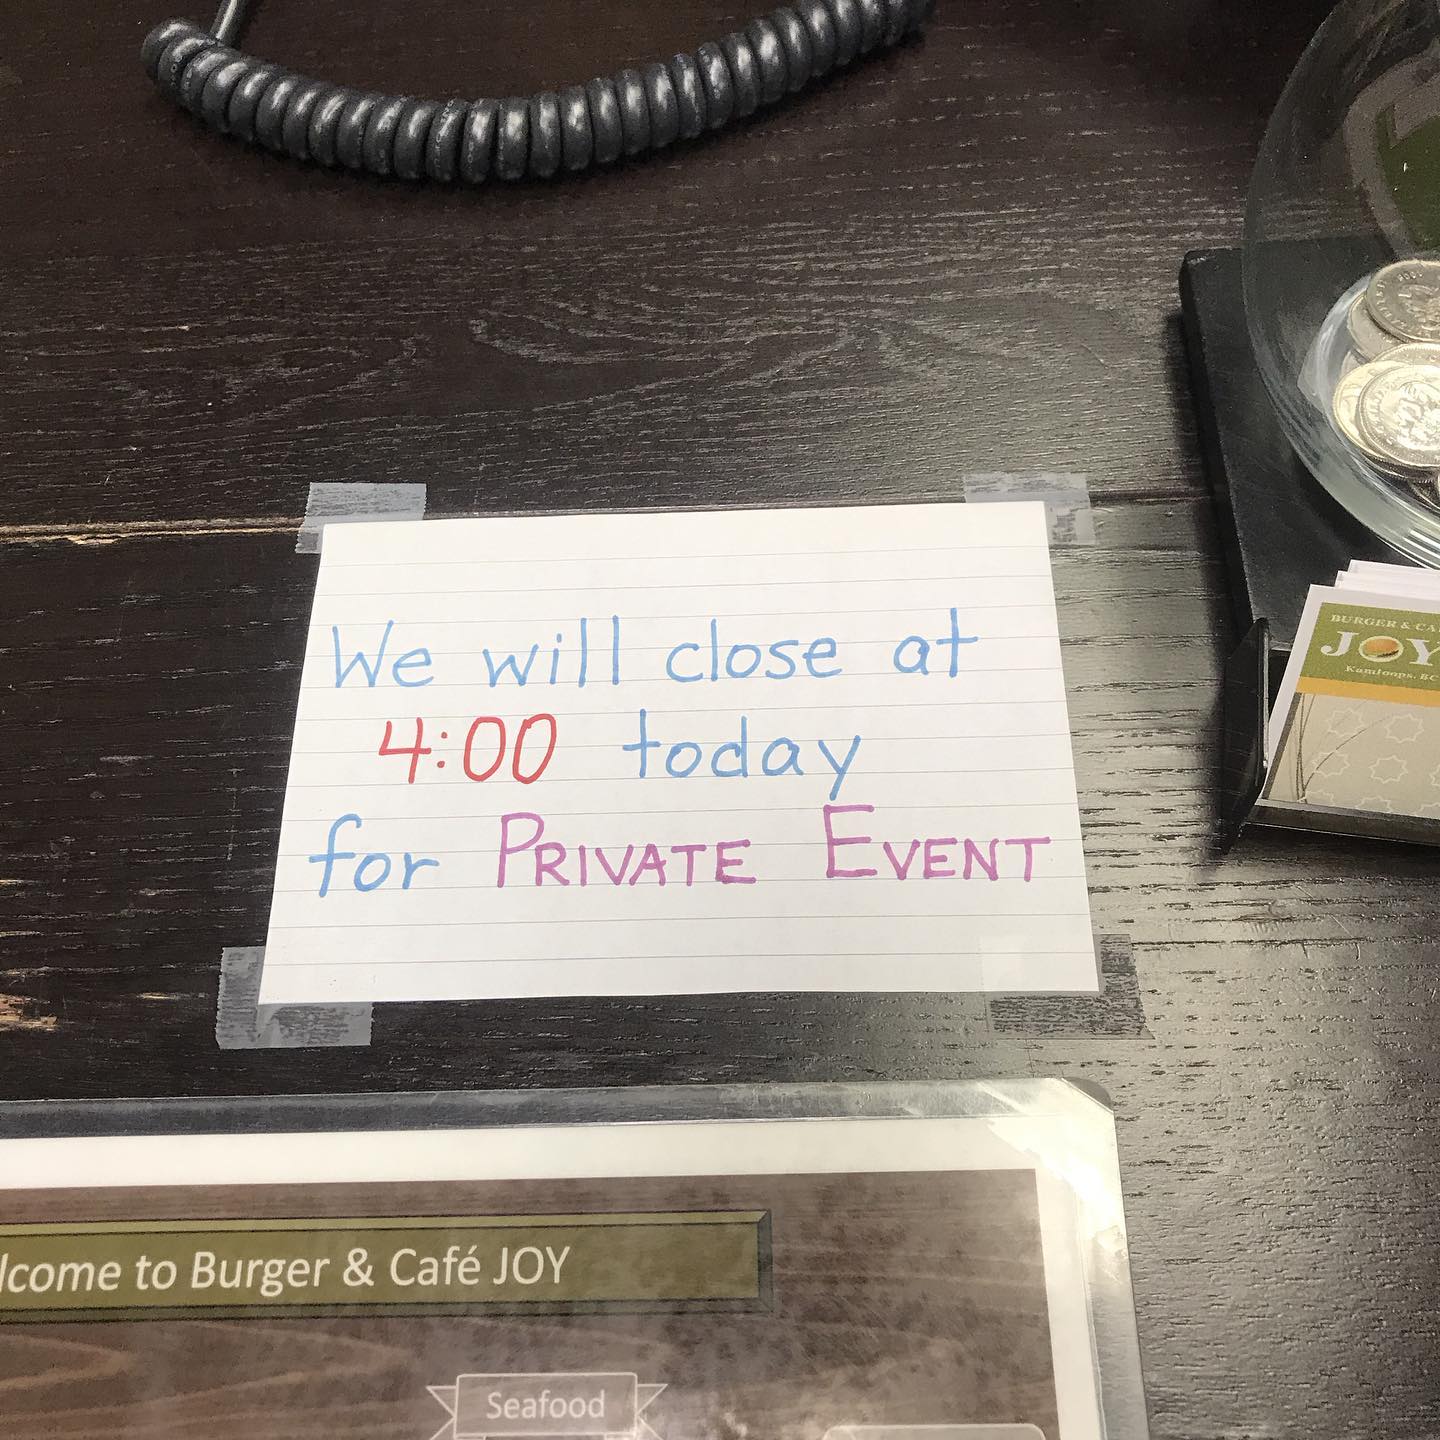 We will close at
4:00 today
for PRIVATE EVENT
BURGER &
JOY
Kamloops, BC
to Burger & Café JOY
Seafood